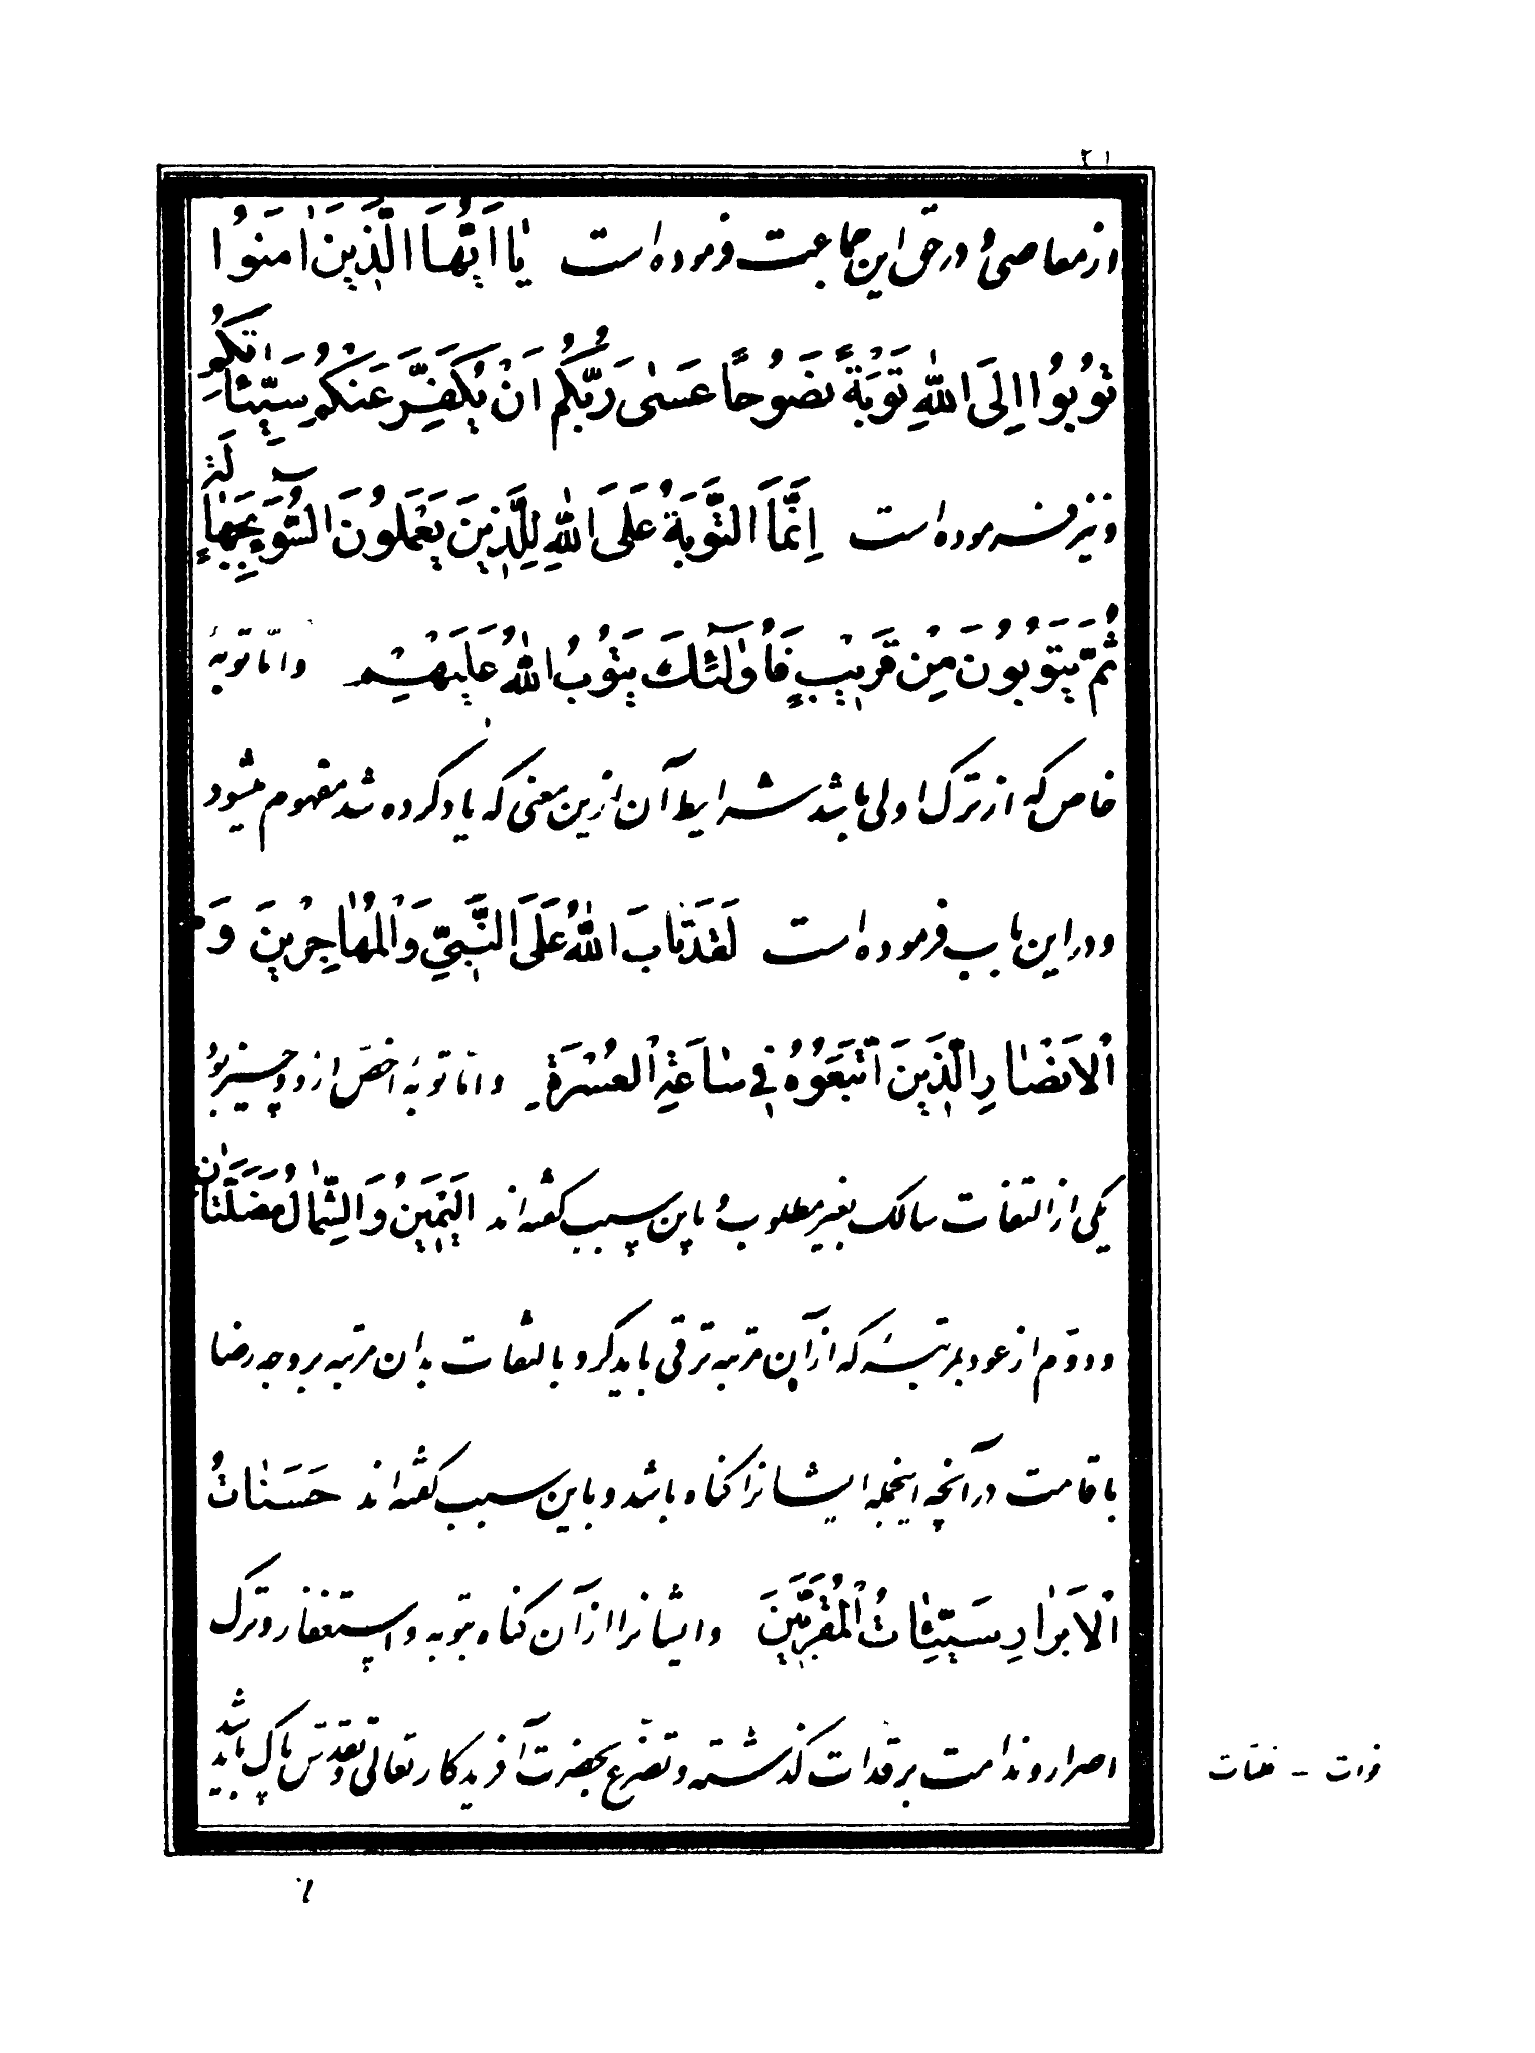 ۲۱
از معاصی و در حق این جماعت فرموده است یٰا اَیُّهَا الَّذِینَ اٰمَنُوا
تُوبُوُا اِلَی اللّٰهِ تَوْبَةً نَصُوحًا عَسٰی رَبُّکُم اَنْ یُکَفِّرَ عَنْکُمْ سَیِّئٰاتِکُمْ
و نیز فرموده است اِنَّمَا التَّوْبَةُ عَلَی اللّٰهِ لِلَّذِینَ یَعْمَلُونَ السُّوۤءَ بِجَهٰالَةٍ
ثُمَّ یَتُوبُونَ مِنْ قَرِیبٍ فَاُولٰۤئِکَ یَتُوبُ اللّٰهُ عَلَیْهِمْ و امّا توبهٔ
خاص که از ترک اولی باشد شرایط آن ازین معنی که یاد کرده شد مفهوم میشود
و در این باب فرموده است لَقَدْ تٰابَ اللّٰهُ عَلَی النَّبِیِّ وَ الْمُهٰاجِرِینَ وَ
الْاَنْصٰارِ الَّذِینَ اتَّبَعُوُهُ فِی سٰاعَةِ الْعُسْرَةِ و امّا توبهٔ اخصّ از دو چیز بوُ
یکی از التفات سالک بغیر مطلوب و باین سبب گفته‌اند الْیَمِینُ وَ الشِّمٰالُ مَضَلَّتٰانِ
و دوّم از عود بمرتبهٔ که از آن مرتبه ترقی باید کرد بالتفات بدان مرتبه بر وجه رضا
باقامت در آنچه اینجمله ایشانرا گناه باشد و باین سبب گفته‌اند حَسَنٰاتُ
الْاَبْرٰارِ سَیِّئٰاتُ الْمُقَرَّبِینَ و ایشانرا از آن گناه بتوبه و استغفار و ترک
اصرار و ندامت بر فدات گذشته و تضرع بحضرت آفریدگار تعالی و تقدس پاک باید شد
فوات -